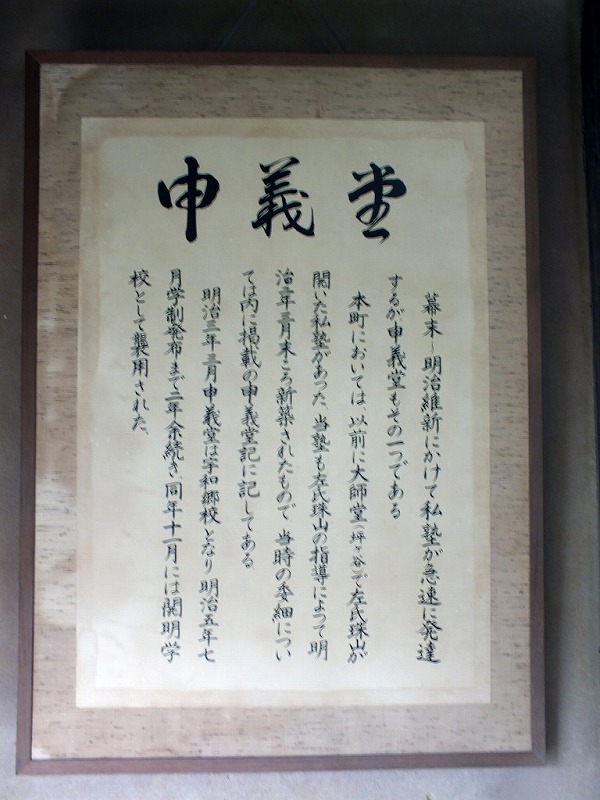 申義堂
幕末―明治維新にかけて私塾が急速に発達
するが申義堂もその一つである
本町においては、以前に大師堂(坪ヶ谷)で左氏珠山が
開いた私塾があった、当塾も左氏珠山の指導によって明
治二年三月末ころ新築されたもので 当時の委細につい
ては内に掲載の申義堂記に記してある
明治三年三月申義堂は宇和郷校となり 明治五年七
月学制発布まで二年余続き、同年十一月には開明学
校として襲用された、